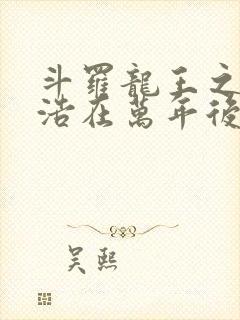 斗羅龍王之
浩在萬年後
吴熙